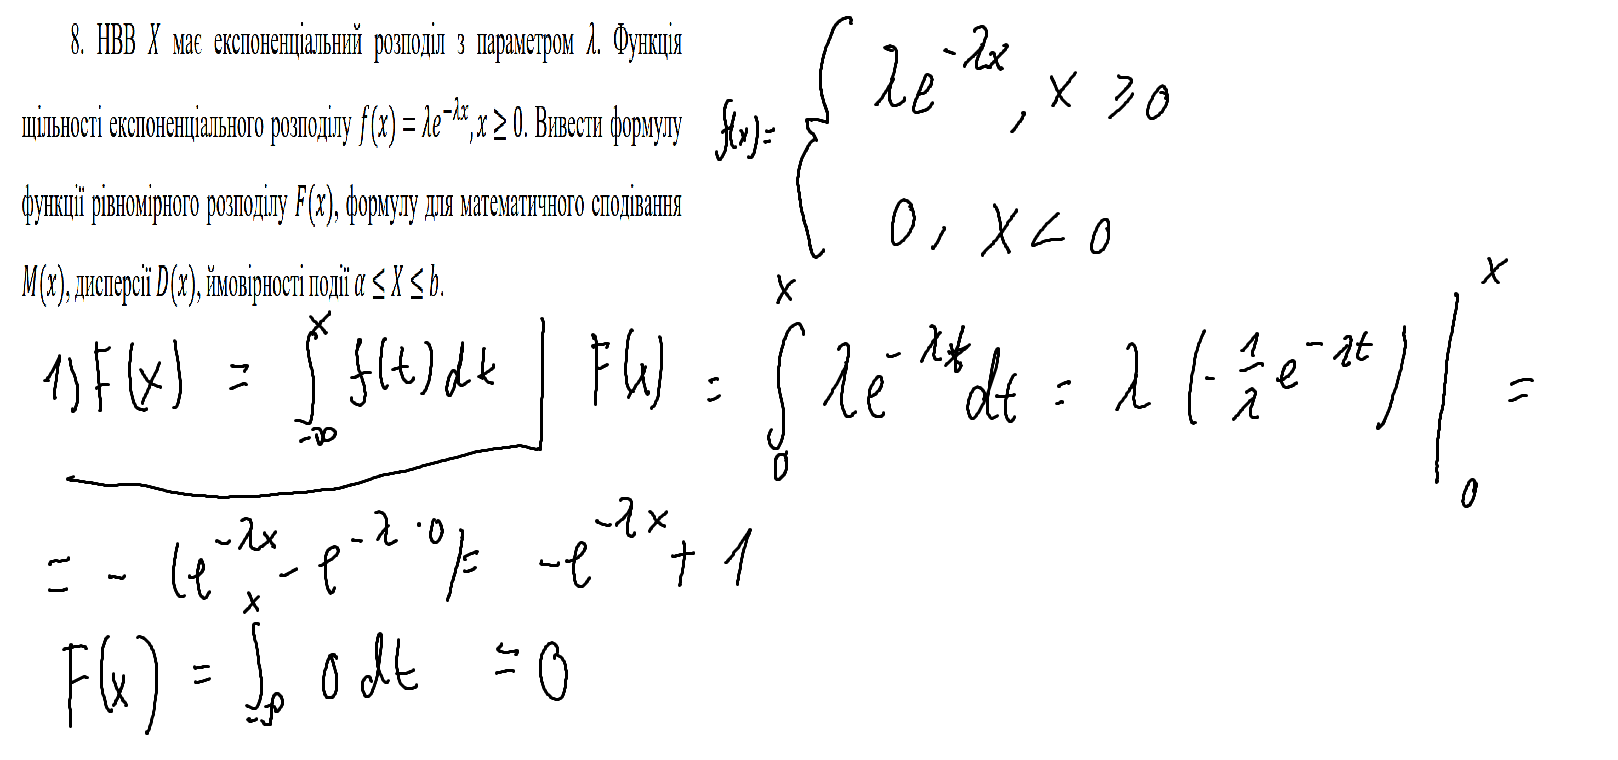 8. НВВ X має експоненціальний розподіл з параметром λ. Функція
щільності експоненціального розподілу f(x) = λe^{−λx}, x ≥ 0. Вивести формулу
функції рівномірного розподілу F(x), формулу для математичного сподівання
M(x), дисперсії D(x), ймовірності події a ≤ X ≤ b.
f(x) = { λe^{-λx}, x ≥ 0
0, x < 0
1) F(x) = ∫_{-∞}^{x} f(t) dt | F(x) = ∫_{0}^{x} λe^{-λt} dt = λ (-1/λ e^{-λt}) |_{0}^{x} =
= - (e^{-λx} - e^{-λ·0}) = -e^{-λx} + 1
F(x) = ∫_{-∞}^{x} 0 dt = 0